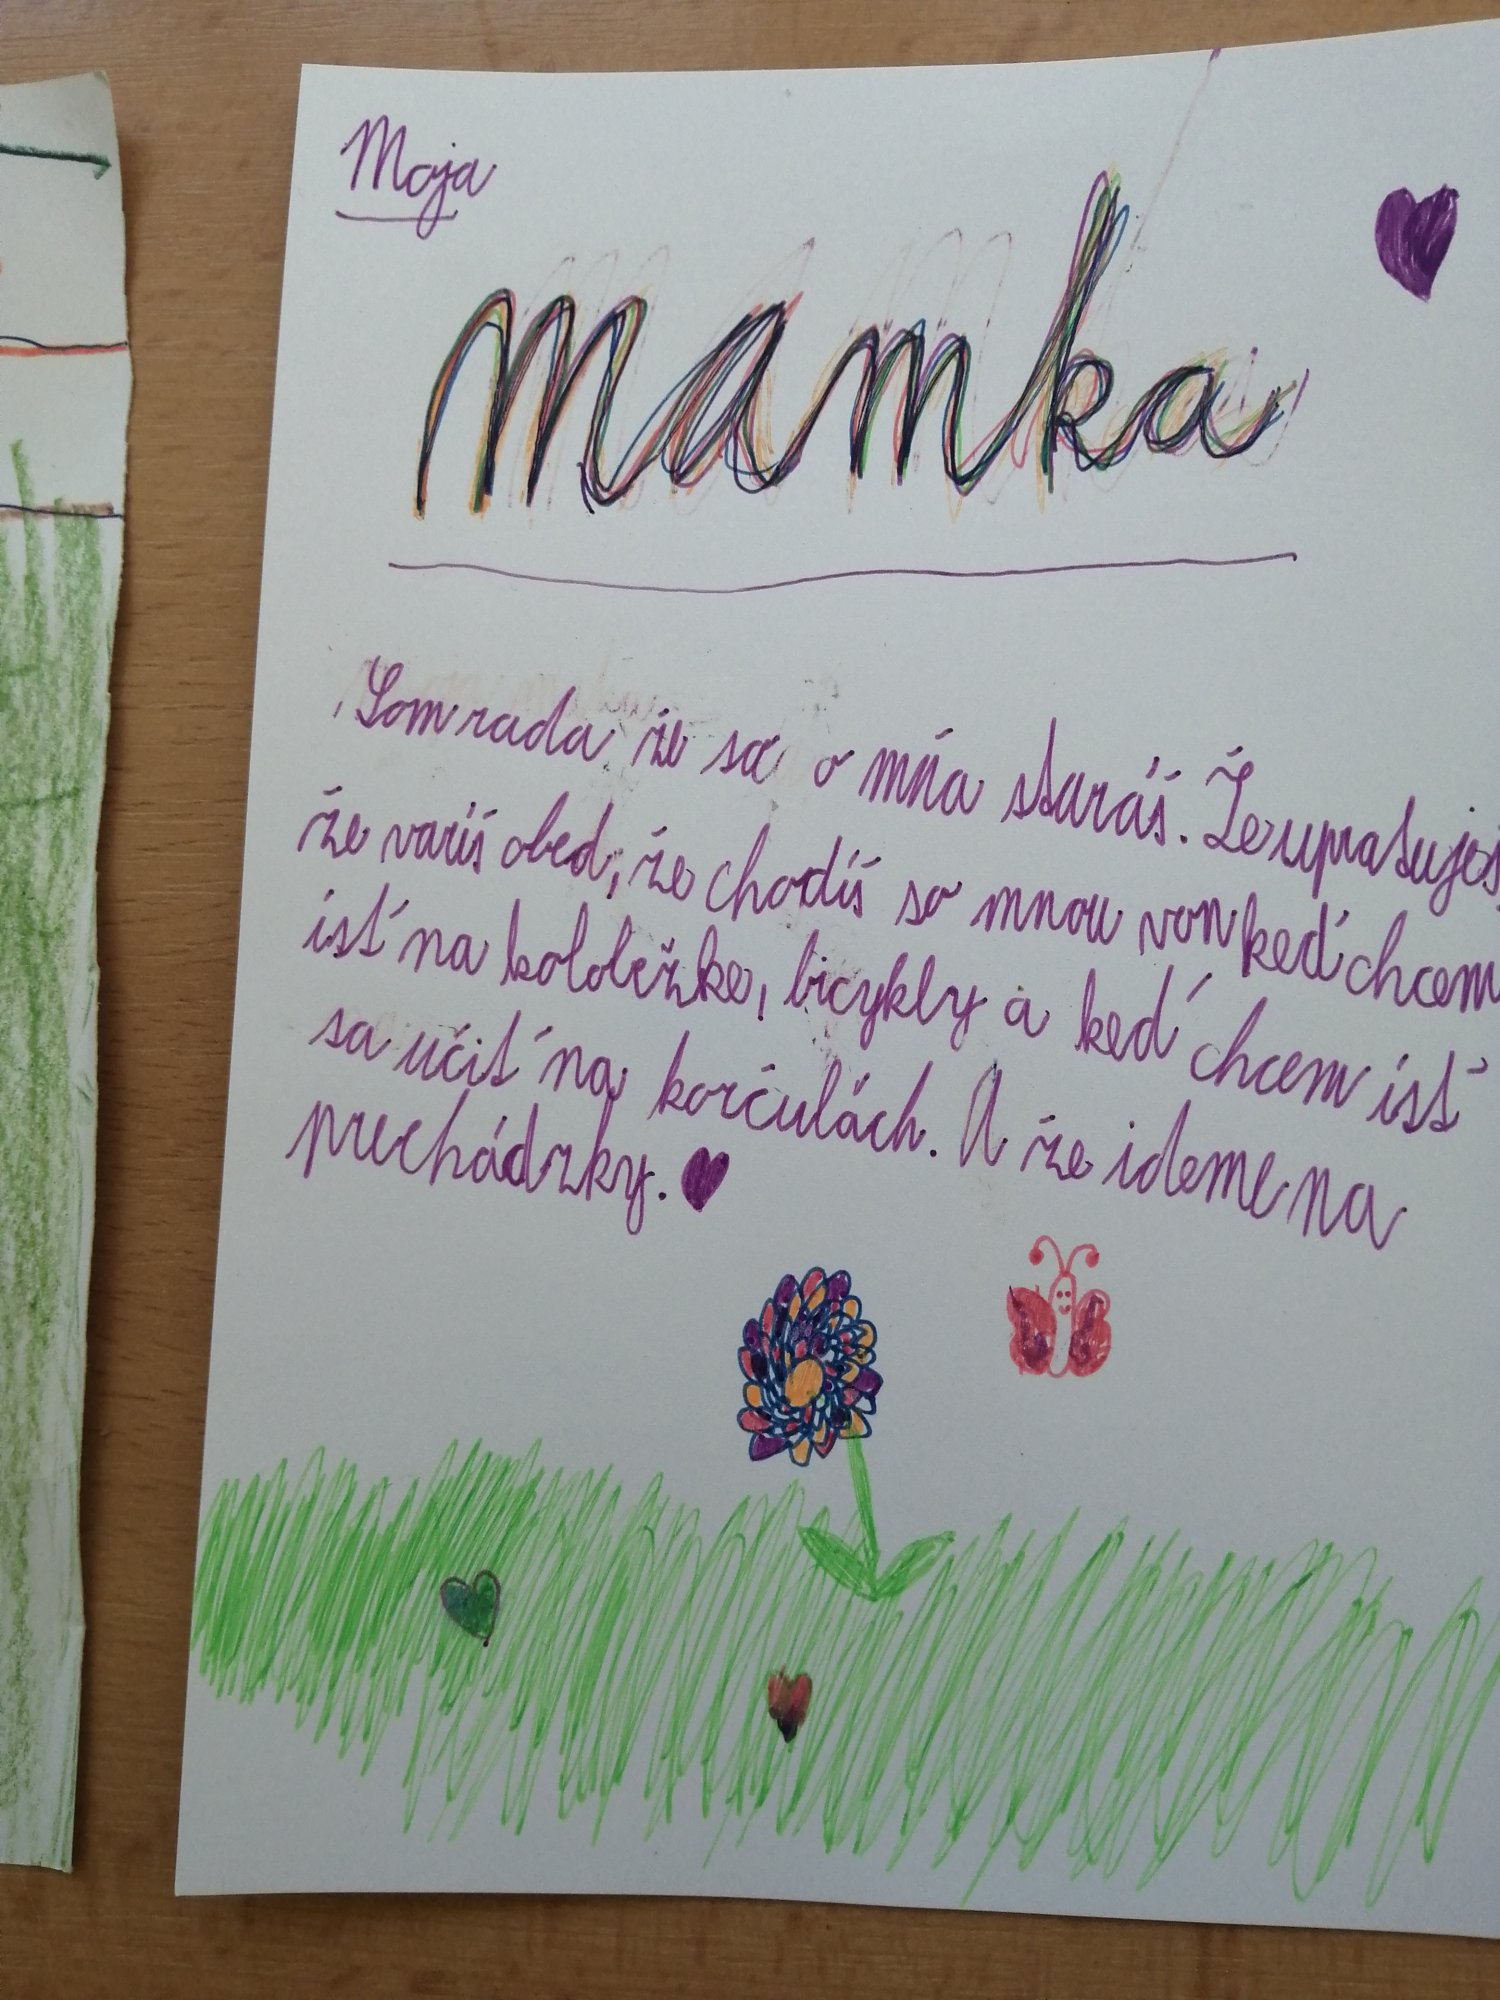 Moja
mamka
Som rada že sa o mňa staráš. Že upratuješ,
že varíš obed, že chodíš so mnou von keď chcem
ísť na kolobežke, bicykly a keď chcem ísť
sa učiť na korčuľách. A že ideme na
prechádzky.